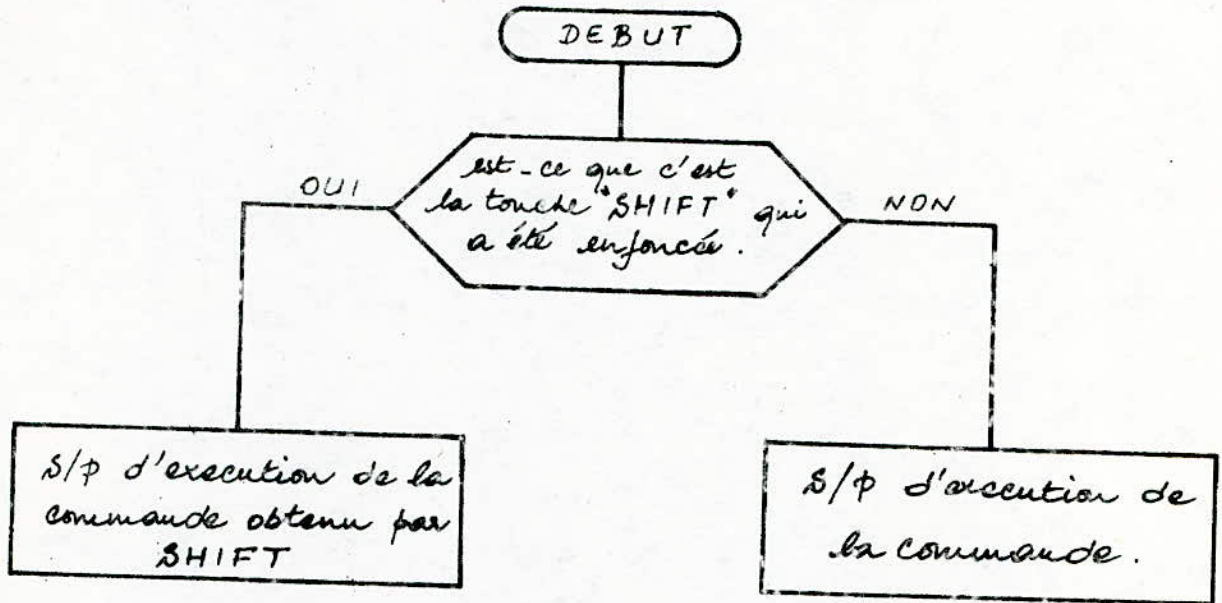 DEBUT
est-ce que c'est
la touche "SHIFT" qui
a été enfoncée.
OUI
NON
S/P d'execution de la
commande obtenu par
SHIFT
S/P d'execution de
la commande.